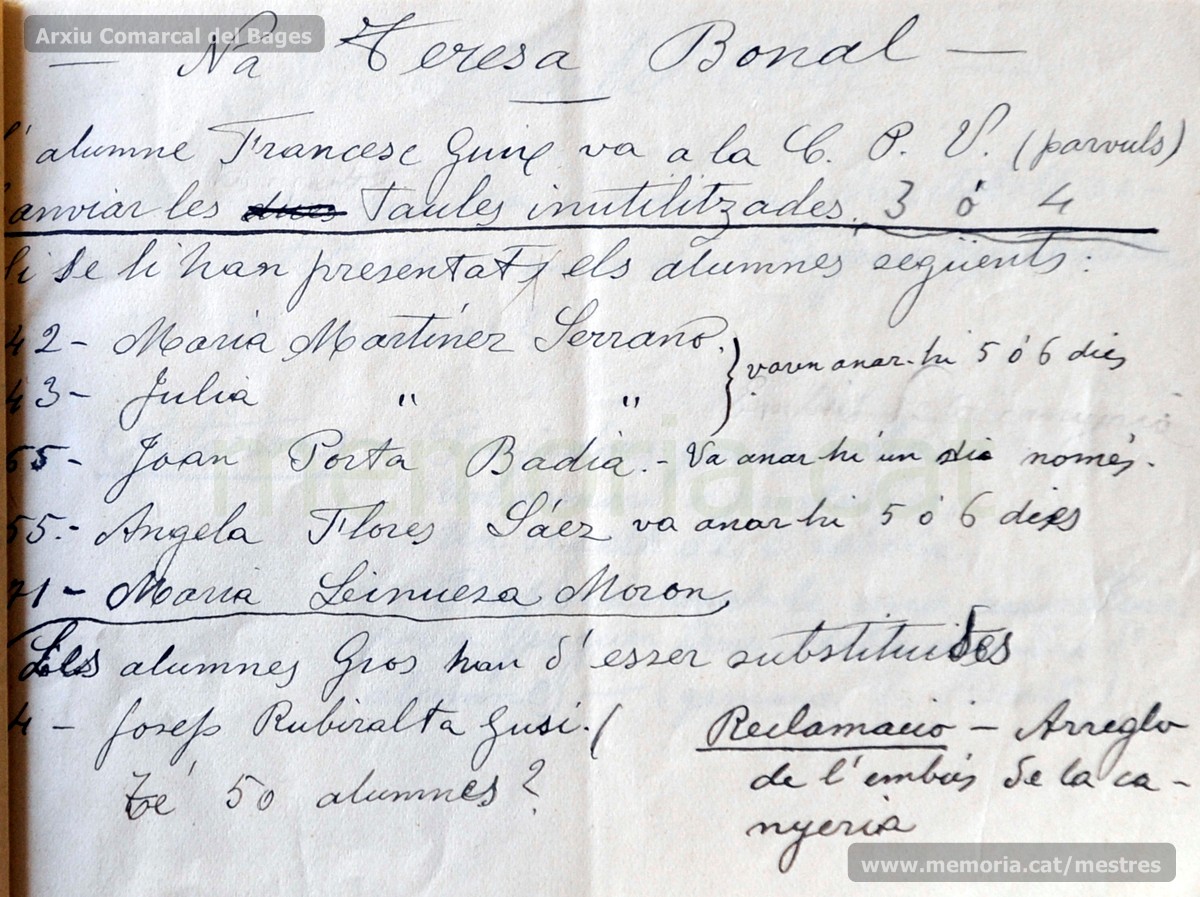 Arxiu Comarcal del Bages
— Na Teresa Bonal —
l'alumne Francesc Guix va a la C. P. V. (parvuls)
anviar les dues Taules inutilitzades. 3 ó 4
li se li han presentat els alumnes següents:
42- Maria Martínez Serrano. } varen anar-hi 5 ó 6 dies
43- Julia " "
55- Joan Porta Badia. - Va anar hi un dia només.
55.- Angela Flores Sáez va anar hi 5 ó 6 dies
71- Maria Moron,
Les alumnes Gros han d'esser substituides
4 - Josep Rubiralta Gusi. (
Té 50 alumnes?
Reclamació - Arreglo
de l'embús de la ca-
nyeria
memoria.cat
www.memoria.cat/mestres